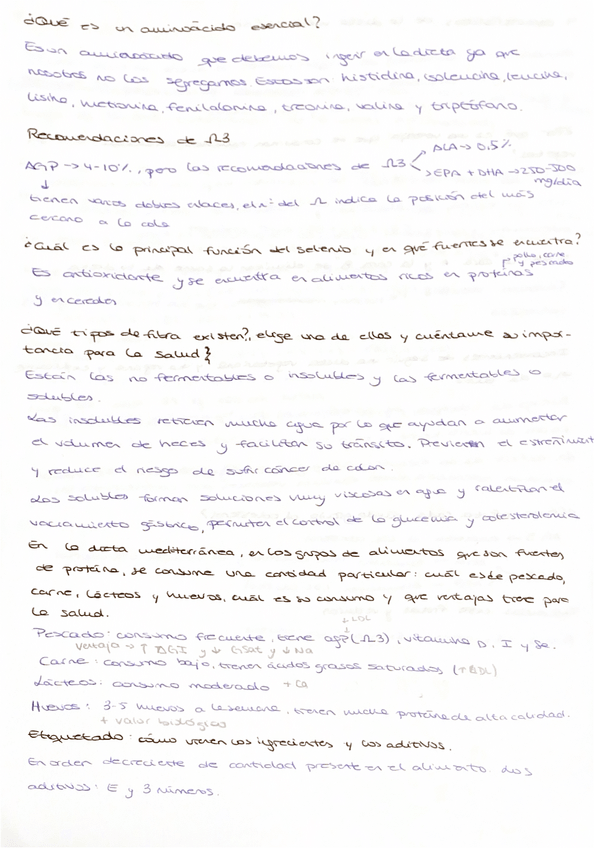 ¿Qué es un aminoácido esencial?
Es un aminoácido que debemos ingerir en la dieta ya que
nosotros no los segregamos. Estos son histidina, isoleucina, leucina,
lisina, metionina, fenilalanina, treonina, valina y triptófano.
Recomendaciones de Ω3
AGP → 4-10%, pero las recomendaciones de Ω3
ALA → 0,5%
EPA + DHA → 250-500
mg/día
tienen varios dobles enlaces, el nº del Ω indica la posición del más
cercano a la cola
¿Cuál es la principal función del selenio y en qué fuentes se encuentra?
pollo, carne
y pescado
Es antioxidante y se encuentra en alimentos ricos en proteínas
y en cereales
¿Qué tipos de fibra existen?, elige una de ellas y cuéntame su impor-
tancia para la salud?
Están las no fermentables o insolubles y las fermentables o
solubles.
Las insolubles retienen mucha agua por lo que ayudan a aumentar
el volumen de heces y facilitan su tránsito. Previenen el estreñimient
y reduce el riesgo de sufrir cáncer de colon.
Las solubles forman soluciones muy viscosas en agua y ralentizan el
vaciamiento gástrico, permiten el control de la glucemia y colesterolemia
En la dieta mediterránea, en los grupos de alimentos que son fuentes
de proteína, se consume una cantidad particular: cuál es de pescado,
carne, lácteos y huevos, cuál es su consumo y que ventajas tiene para
la salud.
↓ LDL
Pescado: consumo frecuente, tiene agp (Ω3), vitamina D, I y Se.
ventaja → ↑ y ↓ GSat y ↓ Na
Carne: consumo bajo, tienen ácidos grasos saturados
Lácteos: consumo moderado + Ca
Huevos: 3-5 huevos a la semana, tienen mucha proteína de alta calidad.
+ valor biológico
Etiquetado: cómo vienen los ingredientes y los aditivos.
En orden decreciente de cantidad presente en el alimento. Los
aditivos: E y 3 números.